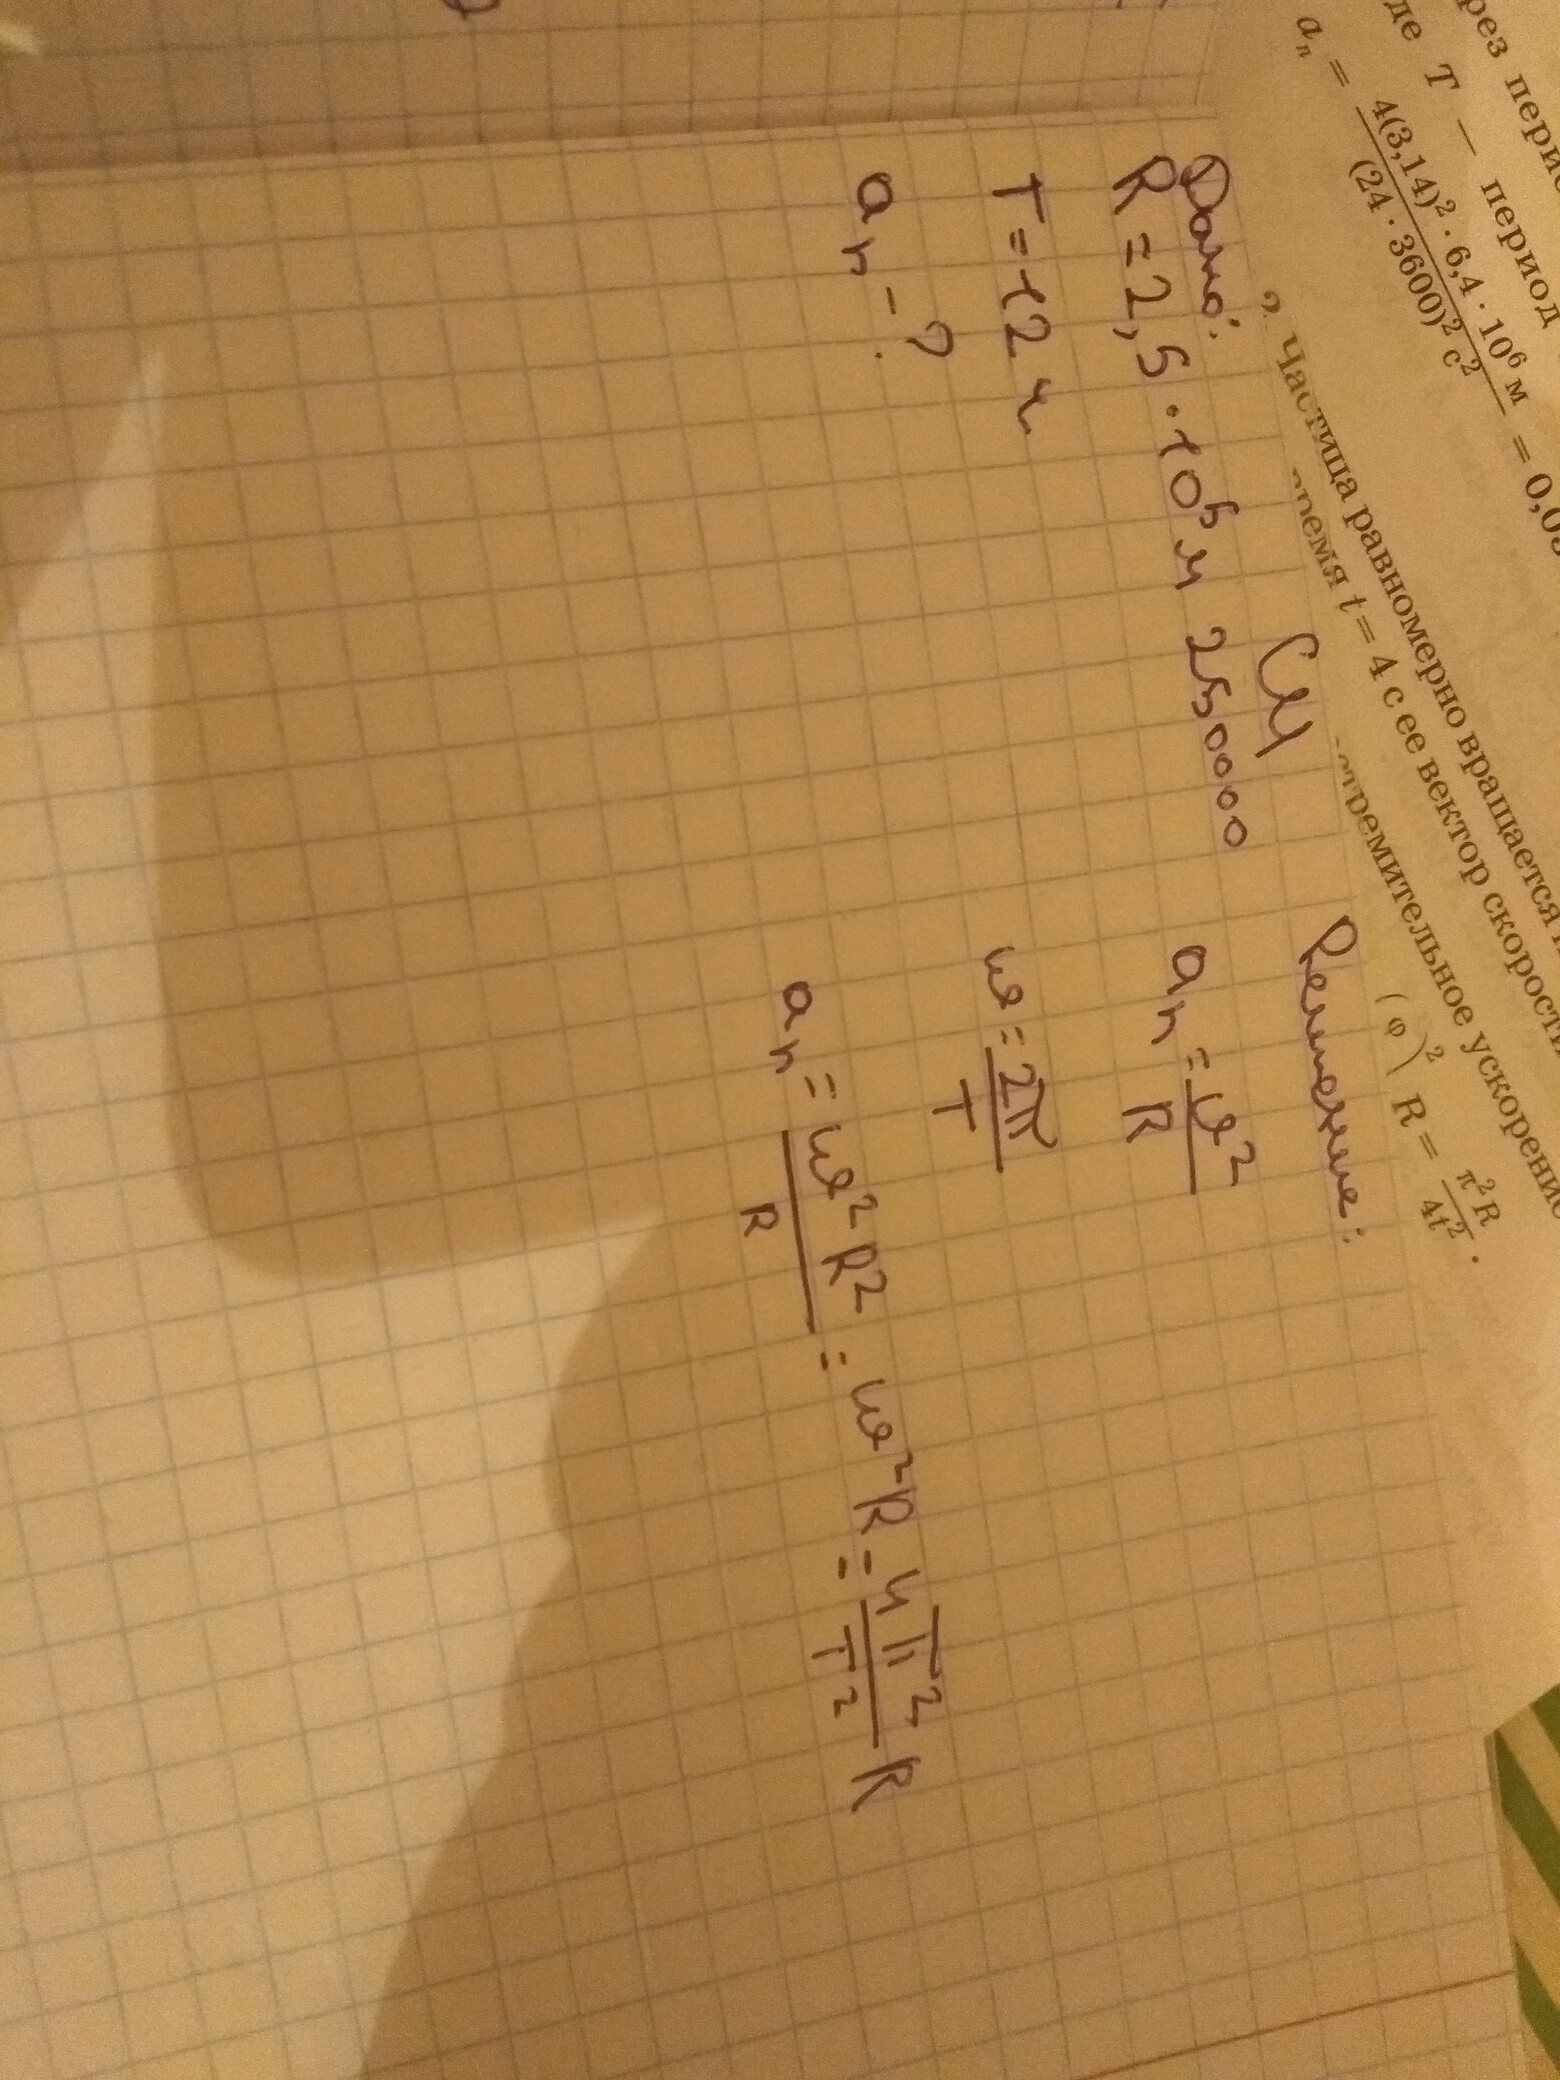 рез перио
де T — период
aₙ = 4(3,14)² · 6,4 · 10⁶ м / (24 · 3600)² с² = 0,03
Частица равномерно вращается
время t = 4 с ее вектор скорости
стремительное ускорение
(φ )² R = π²R / 4t² .
Дано:
R = 2,5 · 10⁵ м
T = 12 ч
aₙ - ?
СИ
250000
Решение:
aₙ = υ² / R
ω = 2π / T
aₙ = ω² R² / R = ω² R = 4π² / T² R